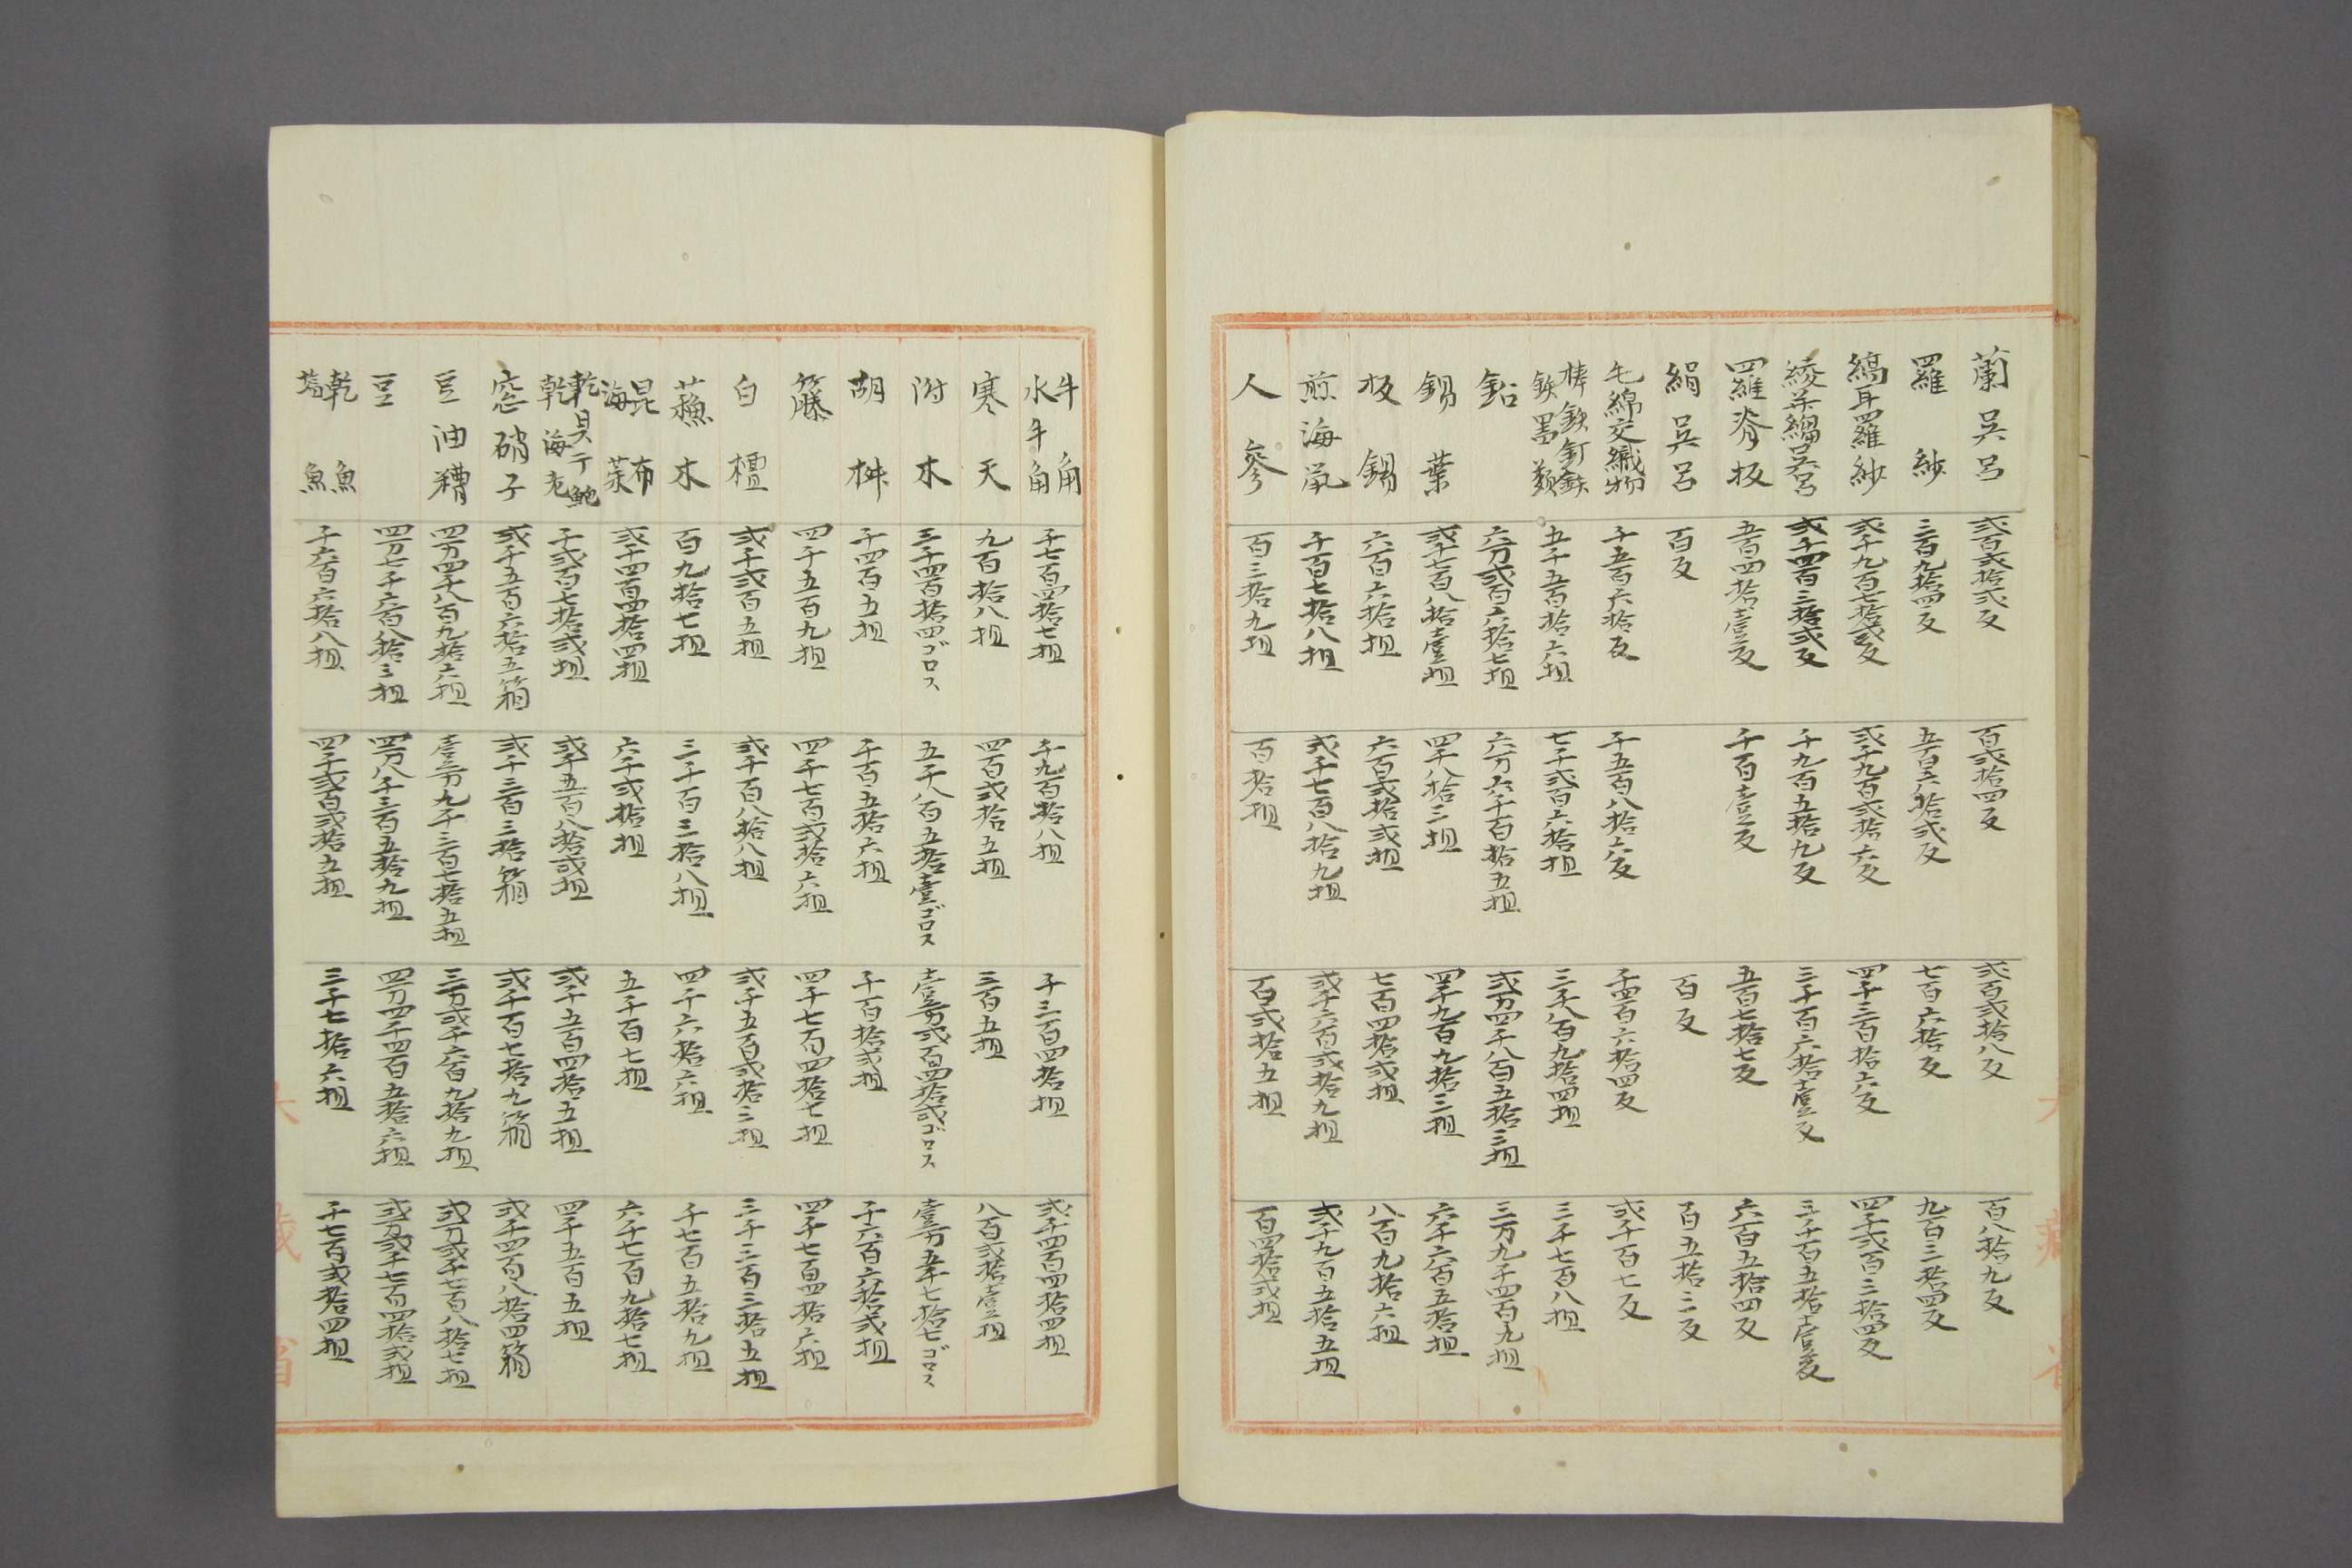 蘭呉呂 弐百弐拾弐反 百弐拾四反 弐百弐拾八反 百八拾九反
羅紗 三百九拾四反 五百六拾弐反 七百六拾反 九百三拾四反
縞耳羅紗 弐千九百七拾弐反 弐千九百弐拾六反 四千三百拾六反 四千弐百三拾四反
綾並縐呉呂 弐千四百三拾弐反 千九百五拾九反 三千百六拾壹反 三千百五拾壹反
四羅脊板 五百四拾壹反 千百壹反 五百七拾七反 六百五拾四反
絹呉呂 百反 百反 百五拾三反
毛綿交織物 千五百六拾反 千五百八拾六反 千四百六拾四反 弐千百七反
棒鉄釘鉄
鉄畧類 五千五百拾六担 七千弐百六拾担 三千八百九拾四担 三千七百八担
鉛 六万弐百六拾七担 六万六千百拾五担 弐万四千八百五拾三担 三万九千四百九担
錫葉 弐千七百八拾壹担 四千八拾三担 四千九百九拾三担 六千六百五拾担
板錫 六百六拾担 六百弐拾弐担 七百四拾弐担 八百九拾六担
煎海鼠 千百七拾八担 弐千七百八拾九担 弐千六百弐拾九担 弐千九百五拾五担
人參 百三拾九担 百拾担 百弐拾五担 百四拾弐担
牛角
水牛角 千七百四拾七担 千九百拾八担 千三百四拾担 弐千四百四拾四担
寒天 九百拾八担 四百弐拾五担 三百五担 八百弐拾壹担
附木 三千四百拾四ゴロス 五千八百五拾壹ゴロス 壹万弐百四拾弐ゴロス 壹万五千七拾七ゴロス
胡椒 千四百五担 千百五拾六担 千百拾弐担 千六百六拾弐担
籐 四千五百九担 四千七百弐拾六担 四千七百四拾七担 四千七百四拾六担
白檀 弐千弐百五担 弐千百八拾八担 弐千五百弐拾三担 三千三百三拾五担
蘓木 百九拾七担 三千百三拾八担 四千六拾六担 千七百五拾九担
昆布
海菜 弐千四百四拾四担 六千弐拾担 五千百七担 六千七百九拾七担
乾貝干鮑
乾海老 千弐百七拾弐担 弐千五百八拾弐担 弐千五百四拾五担 四千五百五担
窓硝子 弐千五百六拾五箱 弐千三百三拾箱 弐千百七拾九箱 弐千四百八拾四箱
豆油糟 四万四千八百九拾六担 壹万九千三百七拾五担 三万弐千六百九拾九担 弐万弐千七百八拾七担
豆 四万七千六百八拾三担 四万八千三百五拾九担 四万四千四百五拾六担 弐万弐千七百四拾弐担
乾魚
塩魚 千六百六拾八担 四千弐百弐拾五担 三千七拾六担 千七百弐拾四担
大藏省